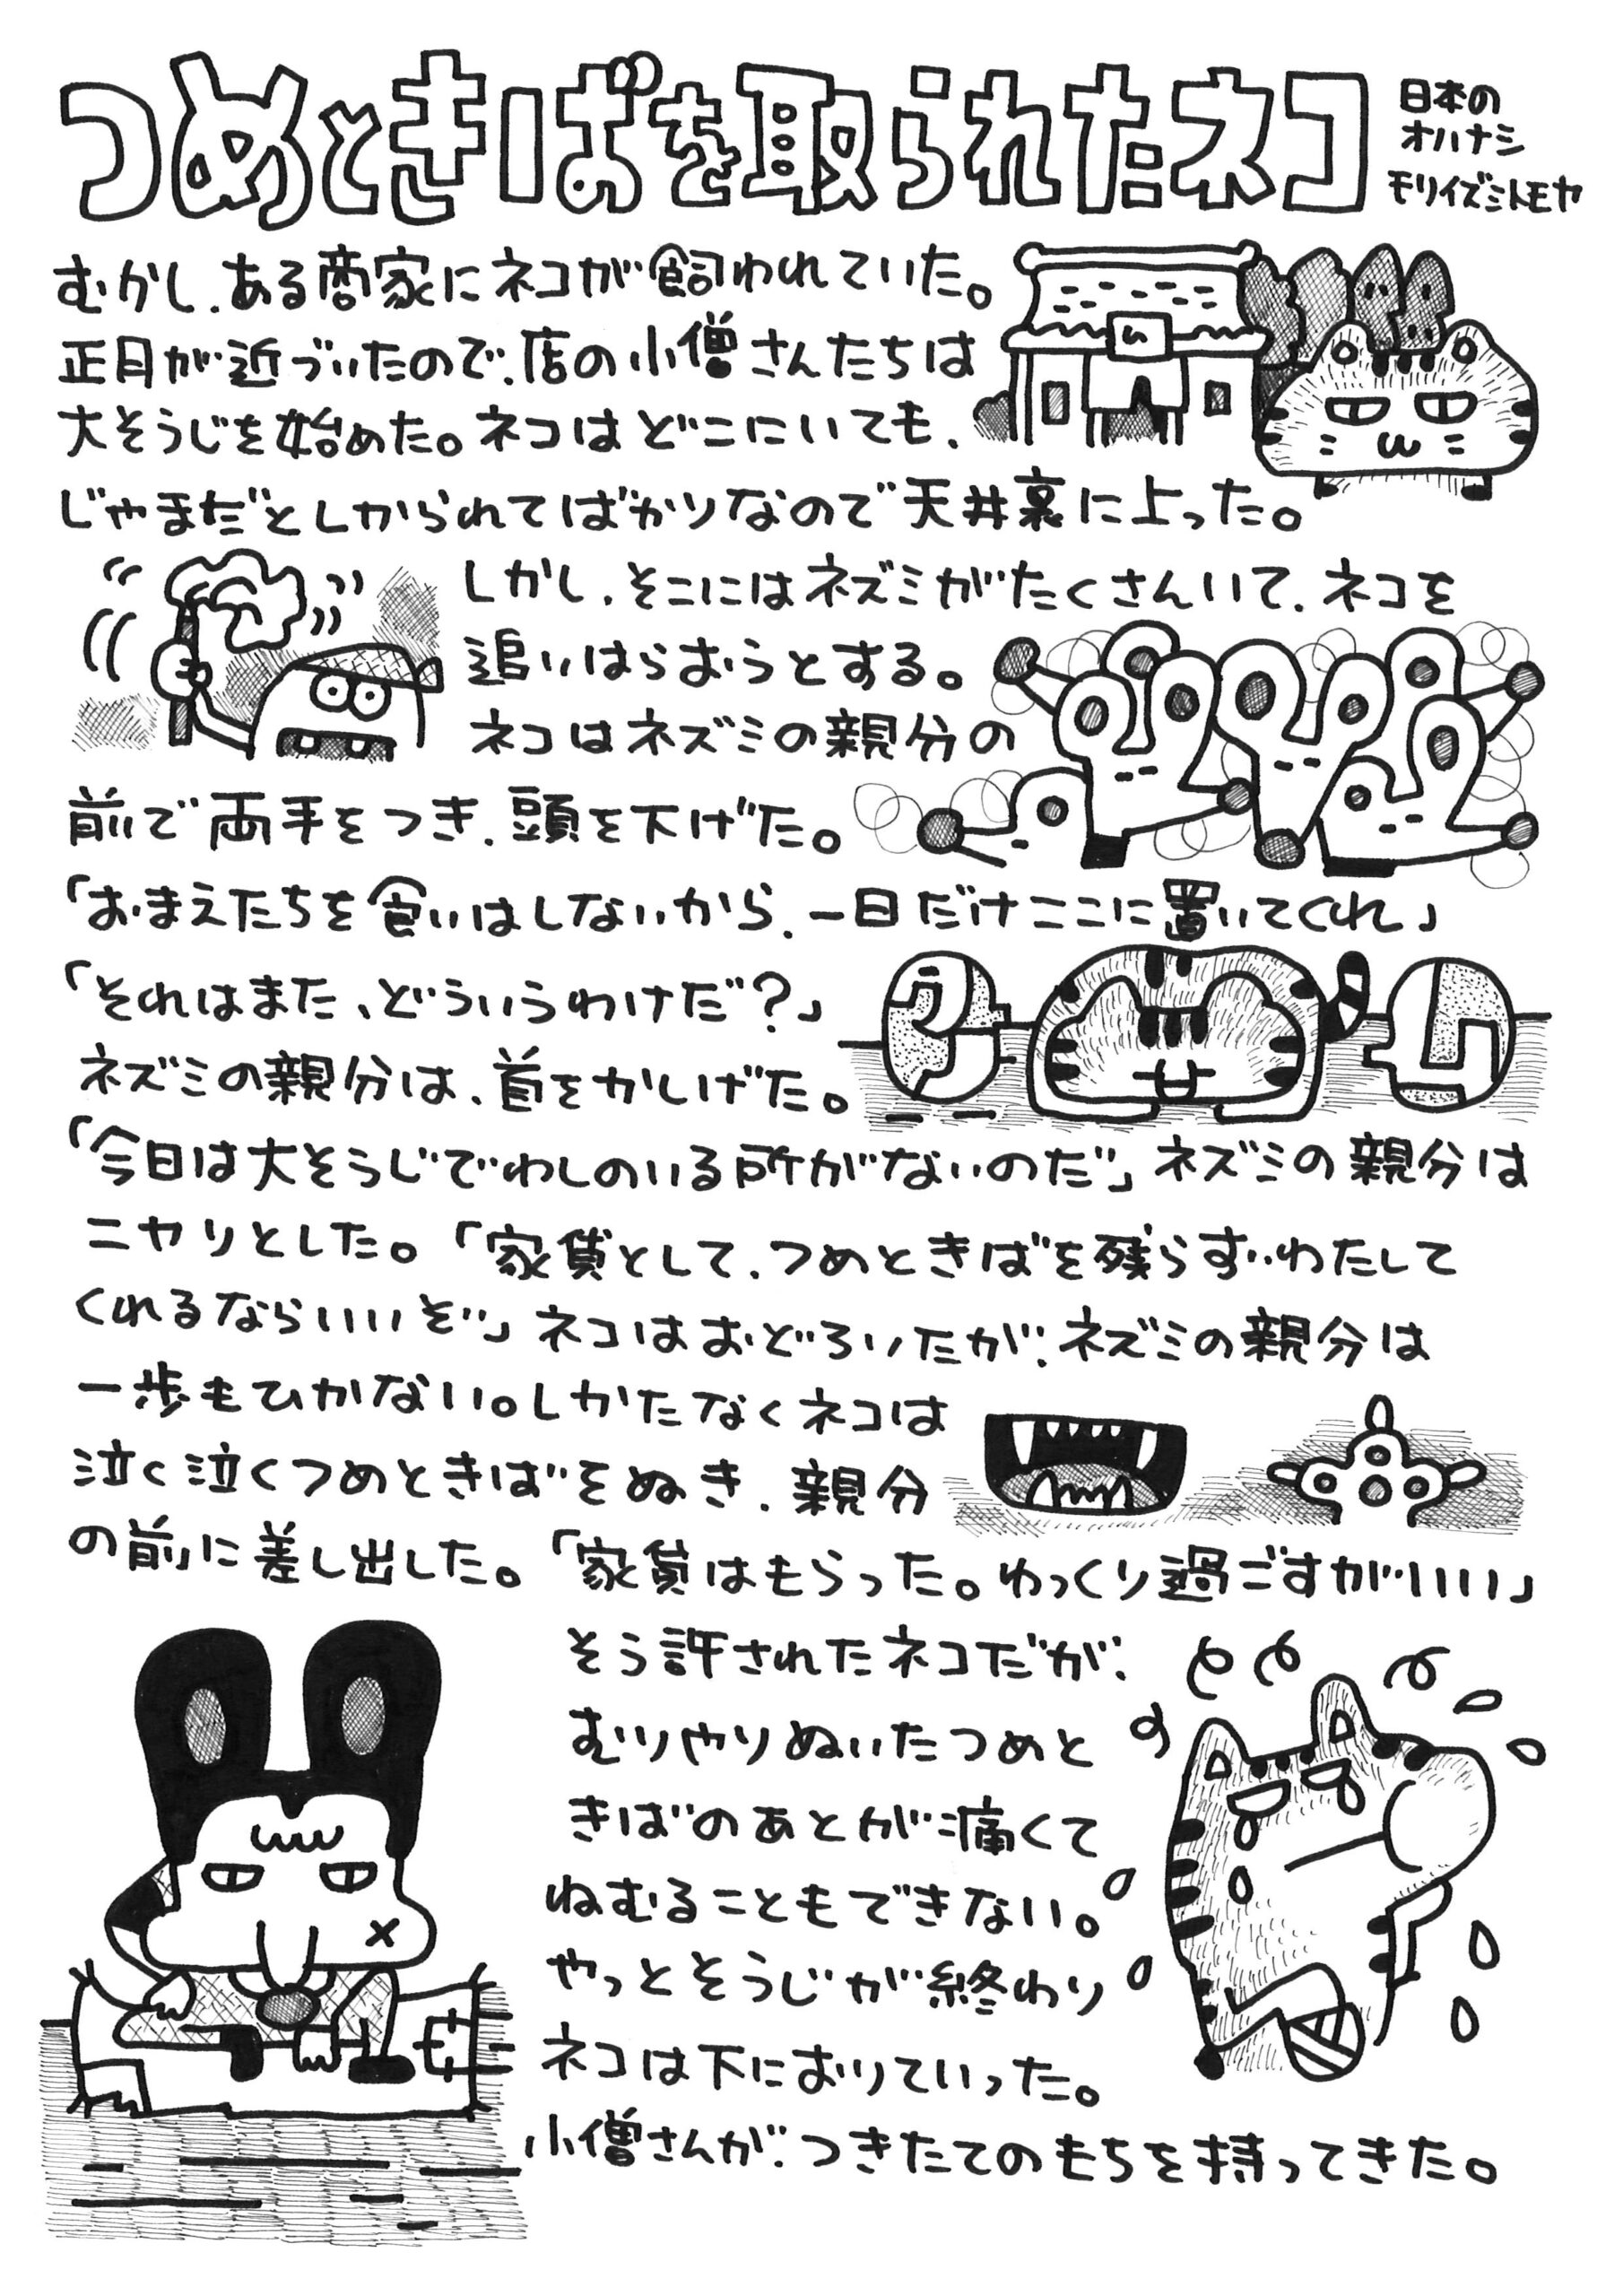 つめときばを取られたネコ
日本の
オハナシ
モリイズミトモヤ
むかし、ある商家にネコが飼われていた。
正月が近づいたので、店の小僧さんたちは
大そうじを始めた。ネコはどこにいても、
じゃまだとしかられてばかりなので天井裏に上った。
しかし、そこにはネズミがたくさんいて、ネコを
追いはらおうとする。
ネコはネズミの親分の
前で両手をつき、頭を下げた。
「おまえたちを食いはしないから、一日だけここに置いてくれ」
「それはまた、どういうわけだ?」
ネズミの親分は、首をかしげた。
「今日は大そうじでわしのいる所がないのだ」ネズミの親分は
ニヤリとした。「家賃として、つめときばを残らずわたして
くれるならいいぞ」ネコはおどろいたが、ネズミの親分は
一歩もひかない。しかたなくネコは
泣く泣くつめときばをぬき、親分
の前に差し出した。「家賃はもらった。ゆっくり過ごすがいい」
そう許されたネコだが、
むりやりぬいたつめと
きばのあとが痛くて
ねむることもできない。
やっとそうじが終わり
ネコは下におりていった。
小僧さんが、つきたてのもちを持ってきた。